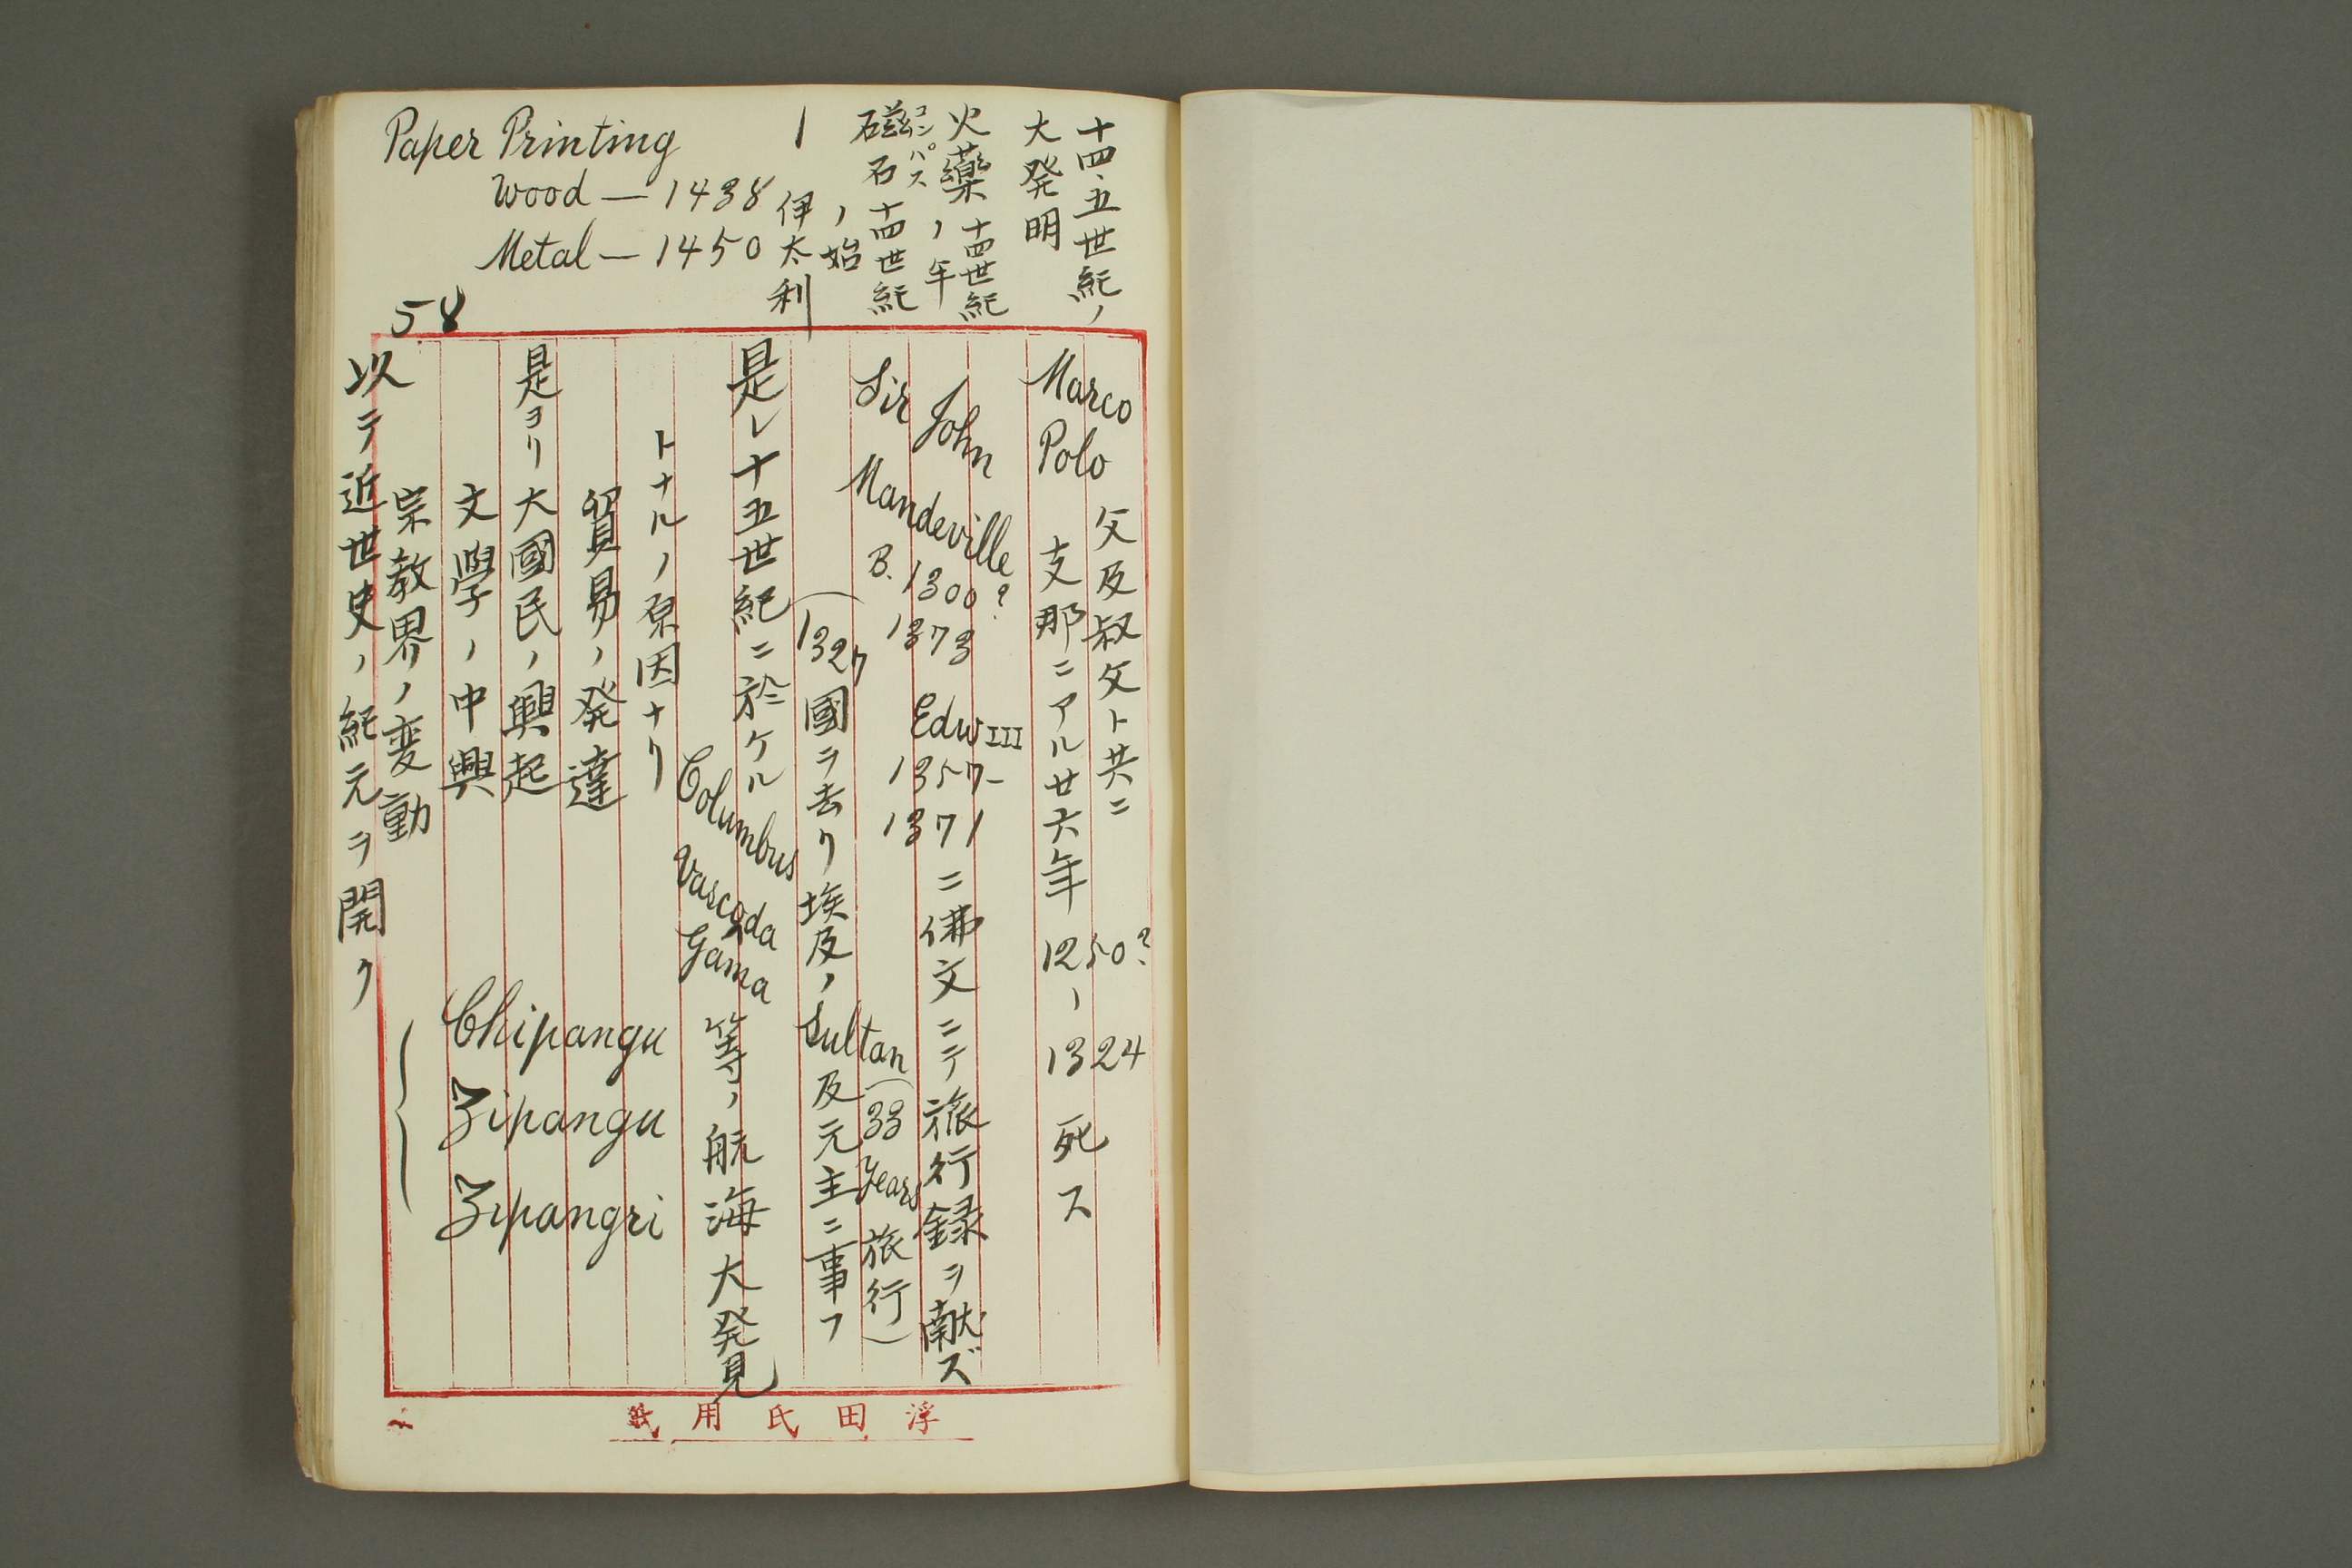 十四、五世紀ノ
大発明
火藥ノ年
十四世紀
コンパス
磁石
十四世紀
ノ始
伊太利
Paper Printing
Wood — 1438
Metal — 1450
58
Marco
Polo
父及叔父ト共ニ
支那ニアル廿六年
1250?
1324
死ス
Sir John Mandeville
B. 1300?
1373
Edw III
1357-
1371
ニ佛文ニテ旅行録ヲ献ズ
(1327國ヲ去リ埃及ノ Sultan 及元主ニ事フ
(33 years 旅行)
是レ十五世紀ニ於ケル
Columbus
Vasco da
Gama
等ノ航海大発見
トナルノ原因ナリ
貿易ノ発達
是ヨリ大國民ノ興起
文學ノ中興
宗教界ノ変動
以テ近世史ノ紀元ヲ開ク
Chipangu
Zipangu
Zipangri
浮田氏用紙